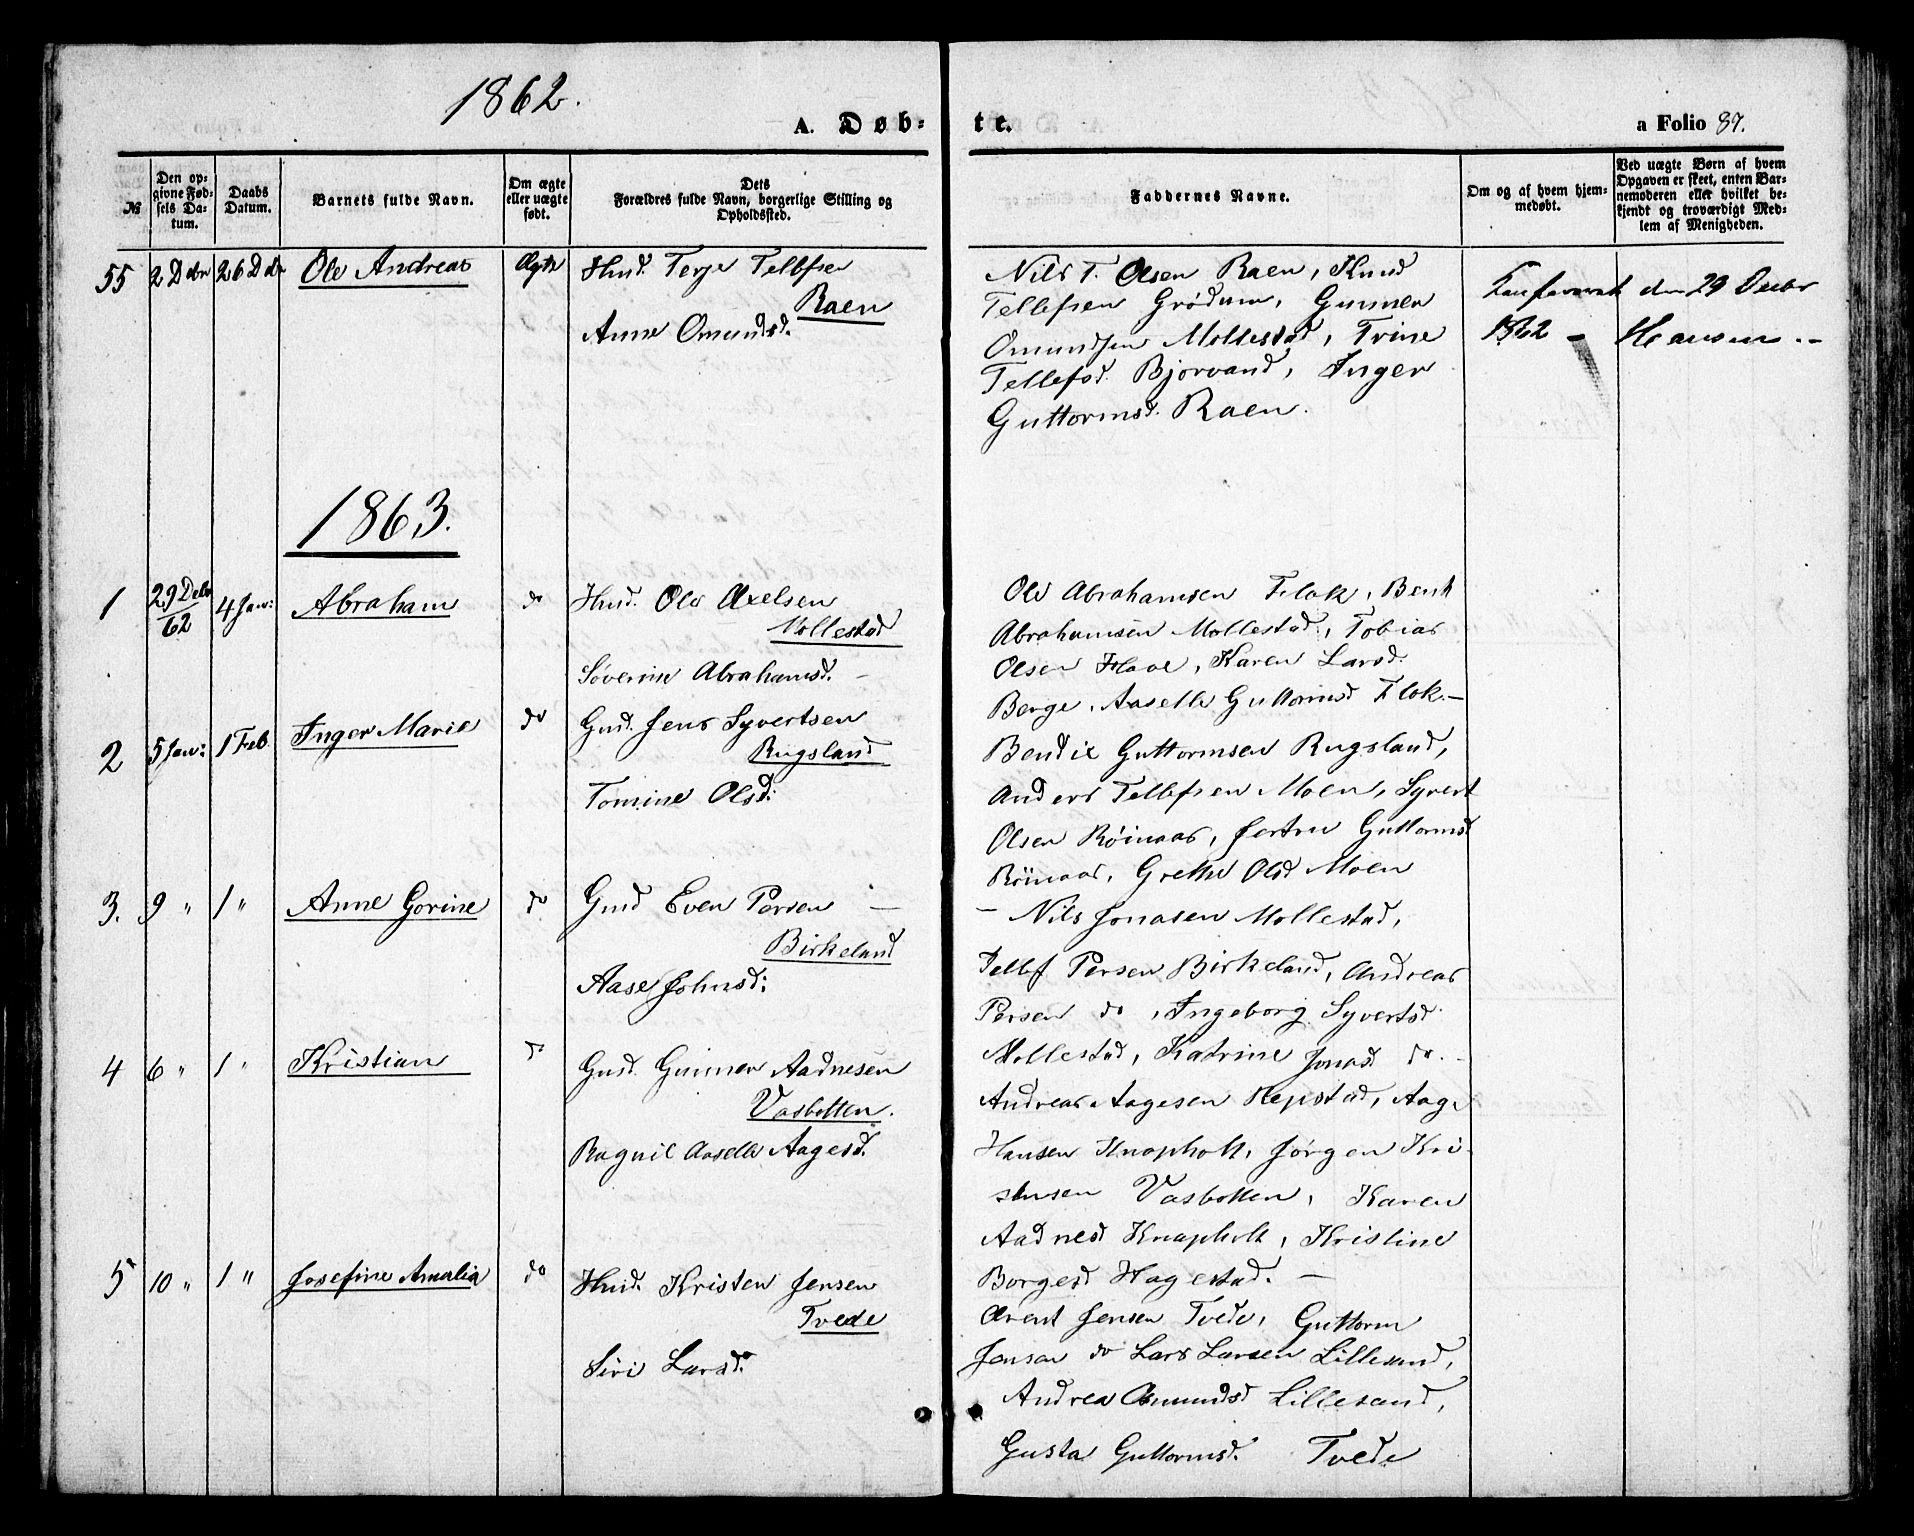 1862.
A. Døbte.
a Folio 87.
№
Den opgivne Fødsels Datum.
Daabs Datum.
Barnets fulde Navn.
Om ægte eller uægte født.
Dets Forældres fulde Navn, borgerlige Stilling og Opholdssted.
Faddernes Navne.
Om og af hvem hjemmedøbt.
Ved uægte Børn af hvem Opgaven er skeet, enten Barnemoderen eller hvilket bekjendt og troværdigt Medlem af Menigheden.
55 2 Dcbr 26 Dcbr Ole Andreas Ægte Husd. Terje Tellefsen
Raen
Anne Omundsd.
Nils T. Olsen Raen, Knud
Tellefsen Grødum, Gunner
Omundsen Mollestad, Trine
Tellefsd. Bjorvand, Inger
Guttormsd. Raen.
Confereret den 29 Decbr
1862 - Hansen.-
1863.
1 29 Decbr/62 4 Jan: Abraham do Husd. Ole Axelsen
Mollestad
Søverine Abrahamsd. -
Ole Abrahamsen Flok, Bent
Abrahamsen Mollestad, Tobias
Olsen Flaae, Karen Larsd.
Berge, Aaselle Guttormsd Flok.-
2 5 Jan: 1 Feb. Inger Marie do Gusd. Jens Syvertsen
Rugsland
Tomine Olsd:
Bendix Guttormsen Rugsland,
Anders Tellefsen Moen, Syvert
Olsen Röinaas, Jertru Guttormsd
Röinaas, Grethe Olsd Moen
3. 9 " 1 " Anne Gorine do Gusd Even Persen -
Birkeland
Aase Johnsd:
- Nils Jonasen Mollestad,
Tellef Persen Birkeland, Andreas
Persen do, Ingeborg Syvertsd
Mollestad, Katrine Jonasd do. -
4 6 " 1 " Kristian do Gusd. Gunner Aadnesen
Vasbotten.
Ragnil Aaselle Aagesd.
Andreas Aagesen Repstad, Aage
Hansen Knapholt, Jørgen Kri-
stensen Vasbotten, Karen
Aadnesd Knapholt, Kristine
Borgesd Hagestad. -
5 10 " 1 " Josefine Amalia do Husd. Kristen Jensen
Tvede
Siri Larsd.
Arent Jensen Tvede, Guttorm
Jensen do Lars Larsen Lillesand,
Andrea Osmundsd Lillesand,
Gusta Guttormsd. Tvede